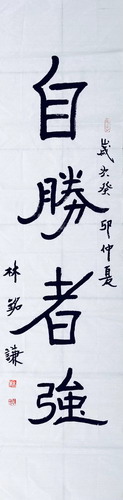 自勝者強
歲次癸卯仲夏
林銘謙